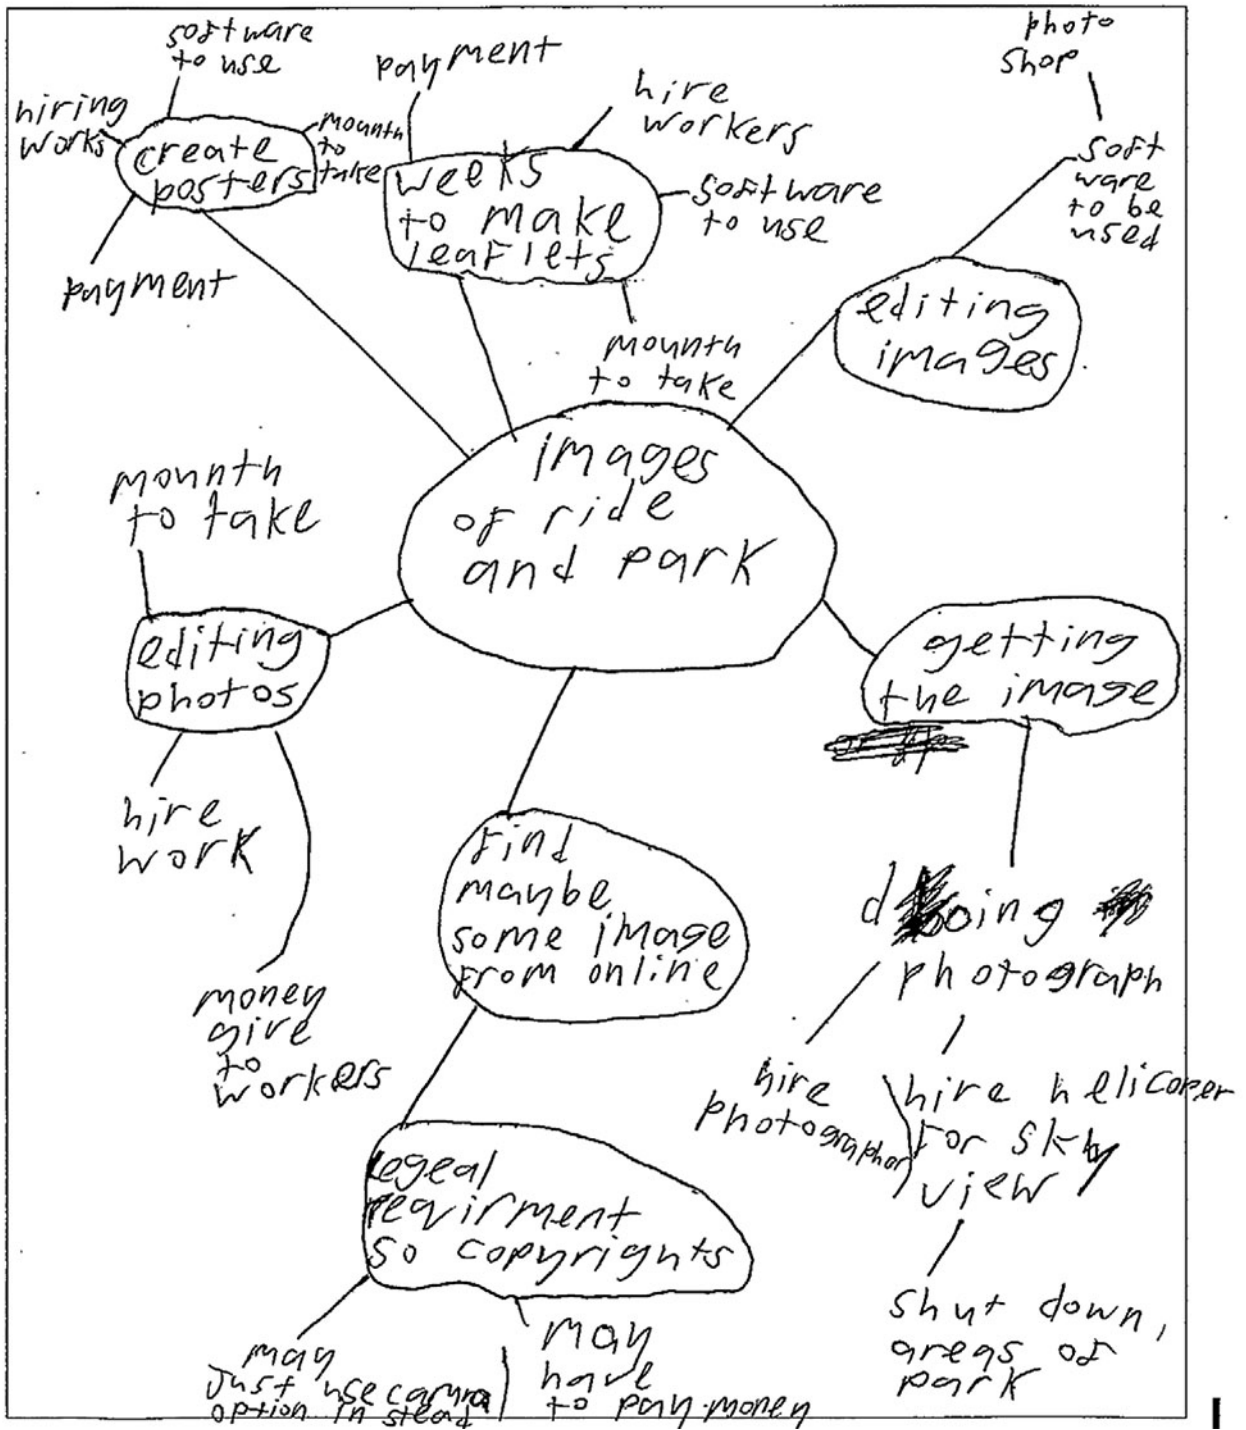 software
to use
hiring
works
create
posters
mounth
to
take
payment
payment
weeks
to make
leaflets
hire
workers
software
to use
mounth
to take
photo
shop
soft
ware
to be
used
editing
images
images
of ride
and park
mounth
to take
editing
photos
hire
work
money
give
to
workers
getting
the image
doing
photograph
hire
photographor
hire helicoper
for sky
view
shut down,
areas of
park
find
maybe
some image
from online
legeal
requirment
so copyrights
may
just use camra
option in stead
may
have
to pay money